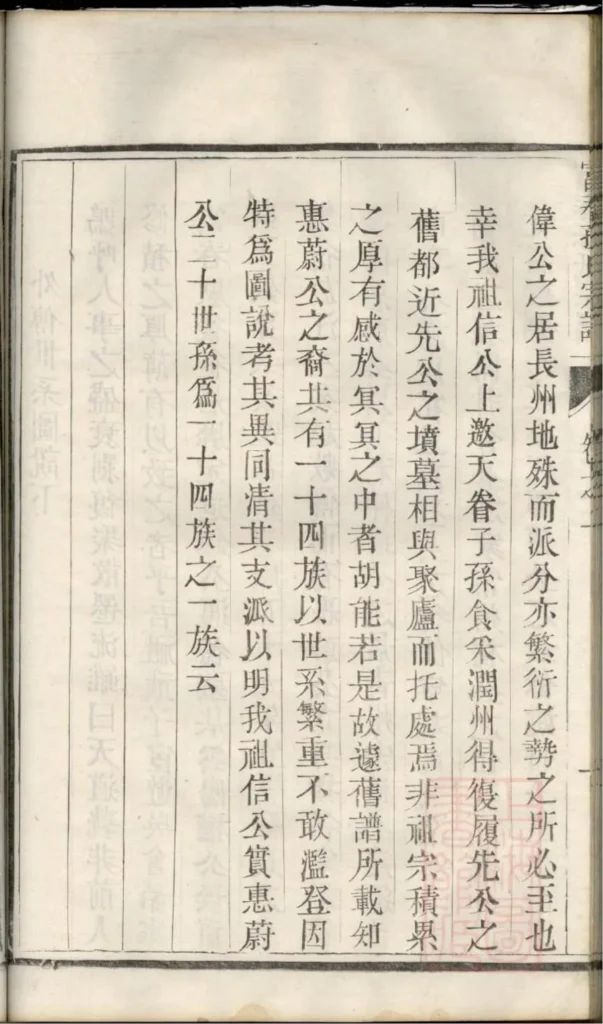 偉公之居長州地殊而派分亦繁衍之勢之所必至也
幸我祖信公上邀天眷子孫食采潤州得復履先公之
舊都近先公之墳墓相與聚廬而托處焉非祖宗積累
之厚有感於冥冥之中者胡能若是故遽舊譜所載知
惠蔚公之裔共有一十四族以世系繁重不敢濫登因
特爲圖說考其異同清其支派以明我祖信公實惠蔚
公二十世孫爲一十四族之一族云
富春孫氏宗譜
卷之